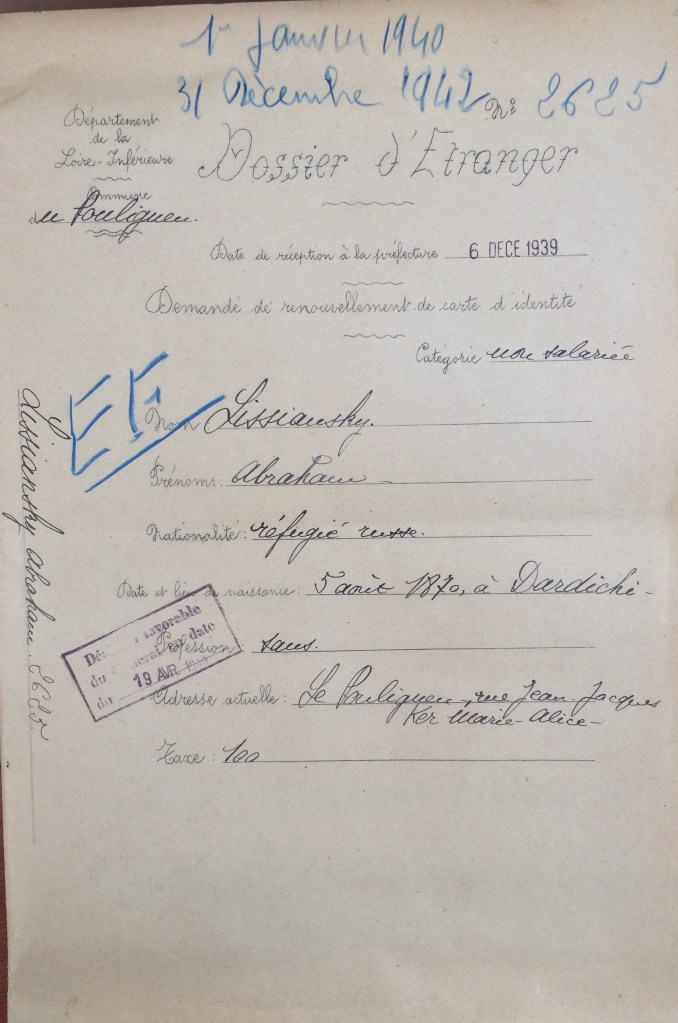 1er Janvier 1940
31 Décembre 1942
N° 2625
Département
de la
Loire-Inférieure
Commune
du Pouliguen.
Dossier d'Etranger
Date de réception à la préfecture 6 DECE 1939
Demande de renouvellement de carte d'identité
Catégorie non salariée
EG
Nom Lissiansky.
Prénoms: Abraham
Nationalité: réfugié russe.
Date et lieu de naissance: 5 août 1870, à Dardichi-
Profession: sans.
favorable
du en date
du 19 AVR
Adresse actuelle: Le Pouliguen, rue Jean-Jacques
Ker Marie-Alice-
Taxe: 100
Lissiansky Abraham. 2625.